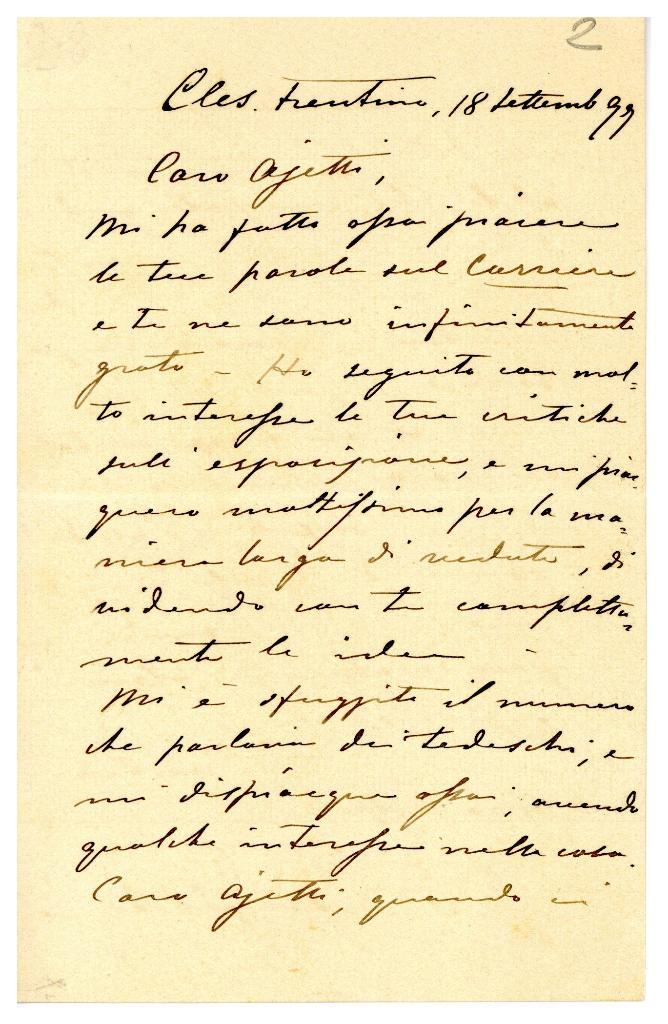 2
Cles. Trentino, 18 Settemb 99
Caro Ojetti,
Mi ha fatto assai piacere
le tue parole sul Corriere
e te ne sono infinitamente
grato – Ho seguito con mol=
to interesse le tue critiche
sull' esposizione, e mi piac=
quero moltissimo per la ma=
niera larga di vedute, di
videndo con te completta=
mente le idee –
Mi è sfuggito il numero
che parlava dei tedeschi, e
mi dispiacque assai, avendo
qualche interesse nella cosa.
Caro Ojetti, quando ci